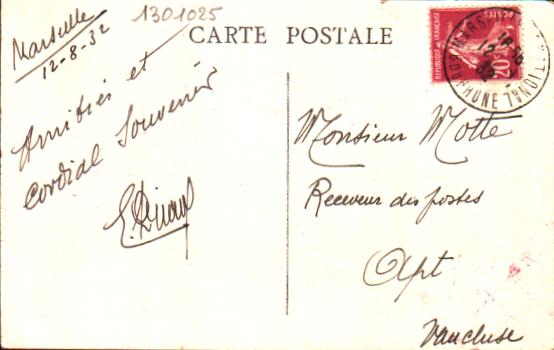 Marseille
12-8-32
1301025
CARTE POSTALE
Amitiés et
cordial souvenir
Monsieur Motte
Receveur des postes
Apt
Vaucluse
REPUBLIQUE FRANÇAISE
POSTES
20c
RHONE